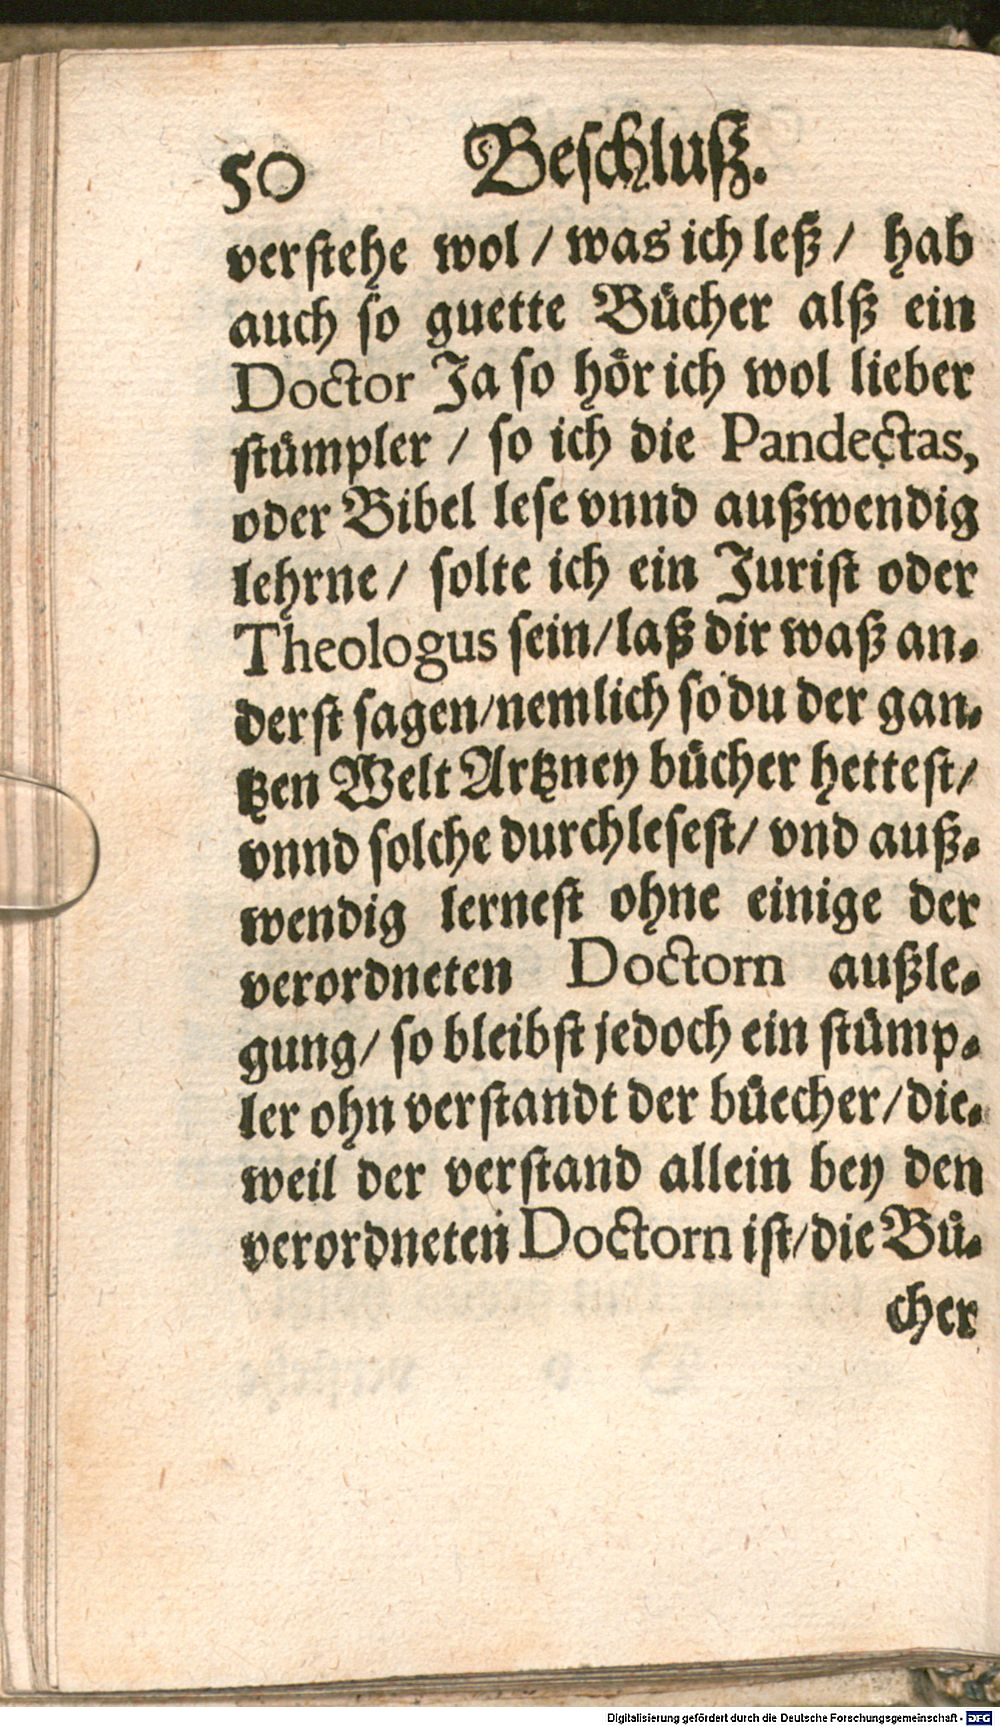 50 Beſchluſz.
verſtehe wol / was ich leß / hab
auch ſo guette Bücher alß ein
Doctor Ja ſo hör ich wol lieber
ſtümpler / ſo ich die Pandectas,
oder Bibel leſe vnnd außwendig
lehrne / ſolte ich ein Juriſt oder
Theologus ſein / laß dir waß an⸗
derſt ſagen / nemlich ſo du der gan⸗
tzen Welt Artzney bücher hetteſt /
vnnd ſolche durchleſeſt / vnd auß⸗
wendig lerneſt ohne einige der
verordneten Doctorn außle⸗
gung / ſo bleibſt jedoch ein ſtümp⸗
ler ohn verſtandt der büecher / die⸗
weil der verſtand allein bey den
verordneten Doctorn iſt / die Bü⸗
cher
Digitalisierung gefördert durch die Deutsche Forschungsgemeinschaft - DFG